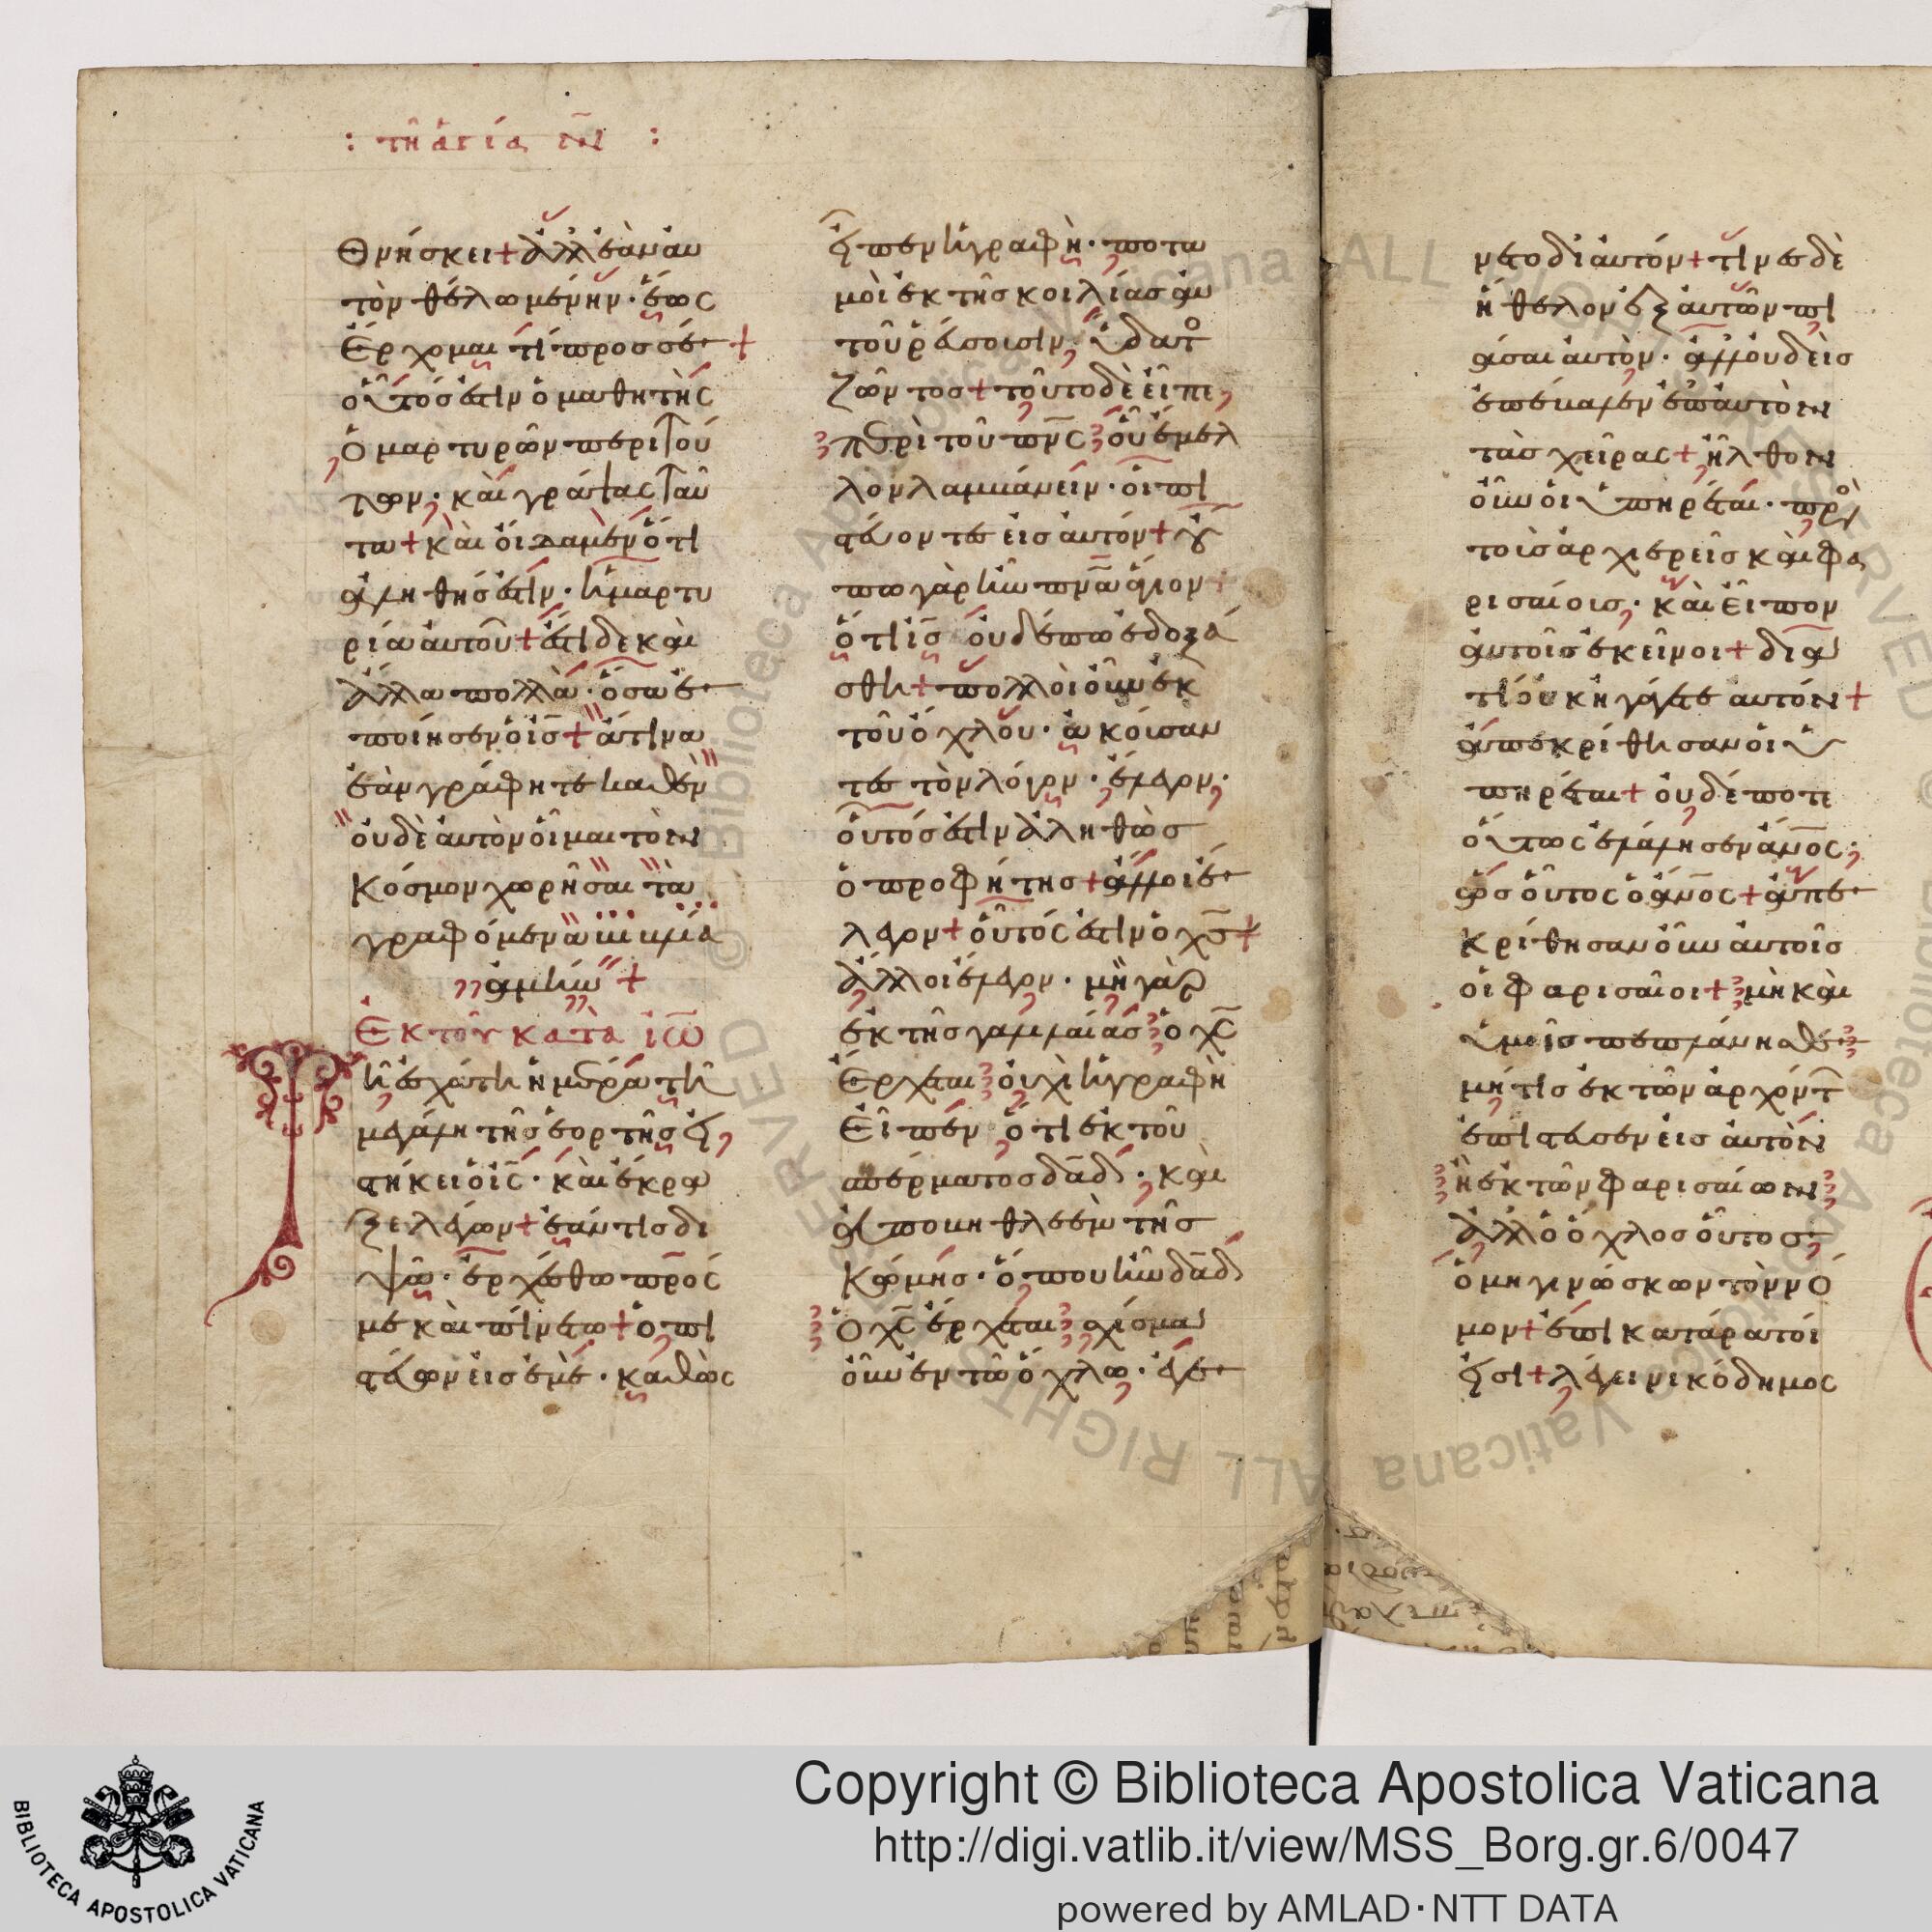 : τῆ ἁγία ν̅ :
θνήσκει + ἀλλ ἐὰν αυ
τὸν θέλω μένην · ἕως
ἔρχομαι τί προσ σέ +
οὗτός ἐστιν ὁ μαθητὴς
ὁ μαρτυρῶν περι τού
των · καὶ γράψας ταῦ
τα + καὶ οἴδαμεν ὅτι
ἀληθής ἐστιν · ἡ μαρτυ
ρία αυτοῦ + ἔστι δε καὶ
ἄλλα πολλὰ · ὅσα ἐ
ποίησεν ὁ ι̅ς̅ + ἅτινα
ἐὰν γράφητε καθ ἓν
οὐδὲ αυτὸν οἶμαι τὸν
κόσμον χωρῆσαι τὰ
γραφόμενα βιβλία
ἀμήν +
Ἐκ τοῦ κατὰ ἰω̅
Τῆ ἐσχάτη ἡμέρα τῆ
μεγάλη τῆς ἑορτῆς εἱ
στήκει ὁ ι̅ς̅ · καὶ ἔκρα
ξε λέγων + ἐάν τις δι
ψῶ · ἐρχέσθω πρός
με καὶ πινέτω + ὁ πι
στεύων εἰς ἐμὲ · καθὼς
εἶπεν ἡ γραφὴ · ποτα
μοὶ ἐκ τῆς κοιλίας αυ
τοῦ ῥεύσουσιν · ὕδατο
ζῶντος + τοῦτο δὲ εἶπε
περὶ τοῦ π̅ν̅ς̅ οὗ ἔμελ
λον λαμβάνειν · οἱ πι
στεύοντες εἰς αυτόν + οὔ
πω γὰρ ἦν π̅ν̅α̅ ἅγιον +
ὅτι ι̅ς̅ ουδέπω ἐδοξά
σθη + πολλοὶ οὖν ἐκ
τοῦ ὄχλου · ἀκούσαν
τες τὸν λόγον · ἔλεγον ·
οὗτός ἐστιν ἀληθῶς
ὁ προφήτης + ἄλλοι ἔ
λεγον + οὗτός ἐστιν ὁ χ̅ς̅ +
ἄλλοι ἔλεγον · μὴ γὰρ
ἐκ τῆς γαλλαίας ὁ χ̅ς̅
ἔρχεται ουχὶ ἡ γραφὴ
εἶπεν ὅτι ἐκ τοῦ
σπέρματος δ̅α̅δ̅ · καὶ
ἀπο βηθλεὲμ τῆς
κώμης · ὅπου ἦν δ̅α̅δ̅
ὁ χ̅ς̅ ἔρχεται σχίσμα
οὖν ἐν τῶ ὄχλω · ἐγέ
νετο δι αυτόν + τινὲς δὲ
ἤθελον ἐξ αυτῶν πι
άσαι αυτὸν · ἀλλ ουδεὶς
ἐπέβαλεν ἐπ αυτὸν
τὰς χεῖρας + ἦλθον
οὖν οἱ ὑπηρέται · προ
τοὺς ἀρχιερεῖς καὶ φα
ρισαίοις · καὶ εἶπον
αυτοῖς ἐκεῖνοι + δια
τί ουκ ἠγάγετε αυτόν +
ἀπεκρίθησαν οἱ ὑ
πηρέται + ουδέποτε
οὕτως ἐλάλησεν ἄ̅ν̅ο̅ς̅
ὡς οὗτος ὁ ἄ̅ν̅ο̅ς̅ + ἀπε
κρίθησαν οὖν αυτοῖς
οἱ φαρισαῖοι + μὴ καὶ
ὑμεῖς πεπλάνησθε
μή τις ἐκ τῶν ἀρχόντ
ἐπίστευσεν εἰς αυτὸν
ἢ ἐκ τῶν φαρισαίων
ἀλλ ὁ ὄχλος οὗτος
ὁ μη γινώσκων τὸν νό
μον + ἐπικατάρατοί
εἰσι + λέγει νικόδημος
Copyright © Biblioteca Apostolica Vaticana
http://digi.vatlib.it/view/MSS_Borg.gr.6/0047
powered by AMLAD·NTT DATA
BIBLIOTECA APOSTOLICA VATICANA